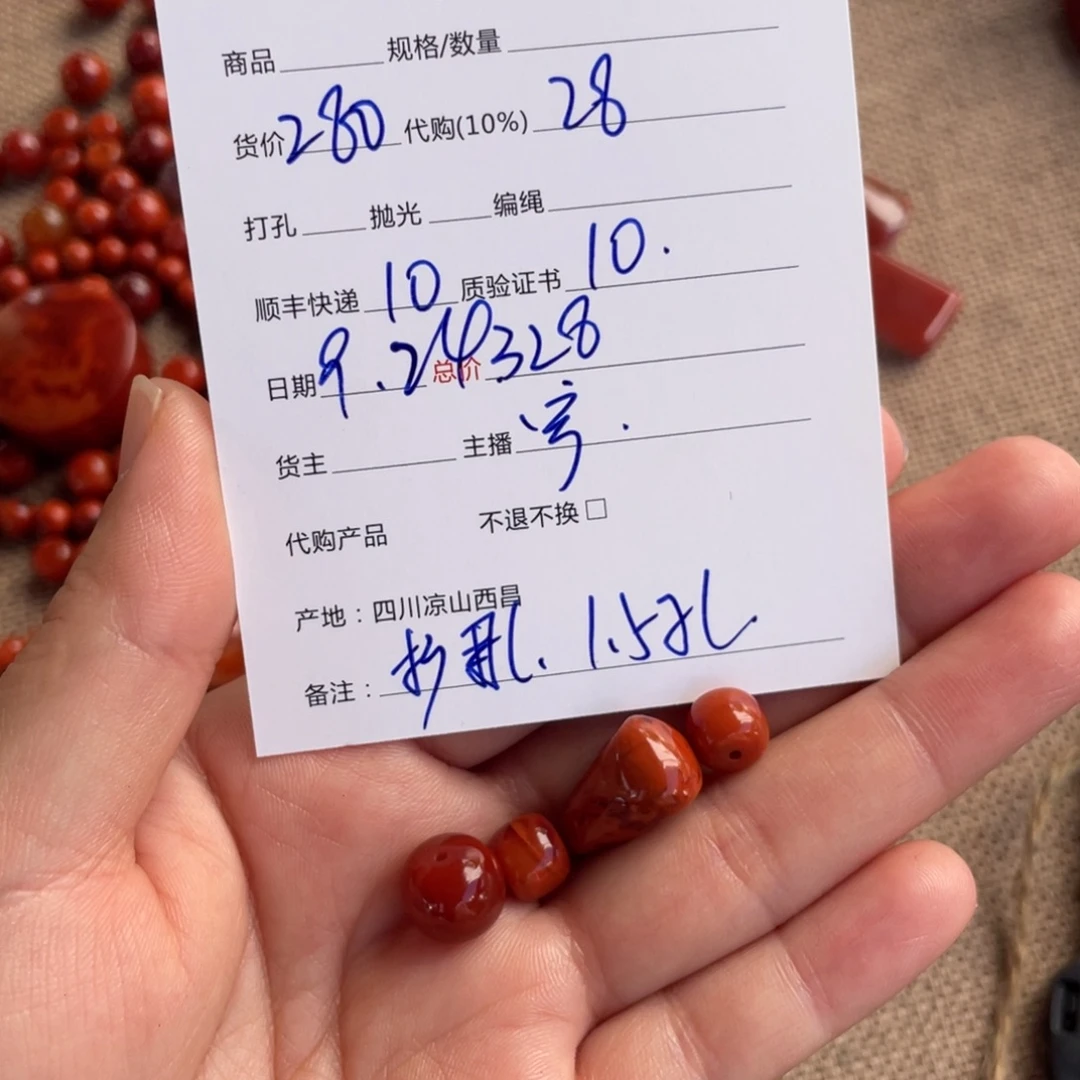 商品 规格/数量
货价 280 代购(10%) 28
打孔 抛光 编绳
顺丰快递 10 质验证书 10.
日期 9.24 总价 328
货主 主播
代购产品 不退不换 □
产地：四川凉山西昌
备注： 孔. 1.5孔.